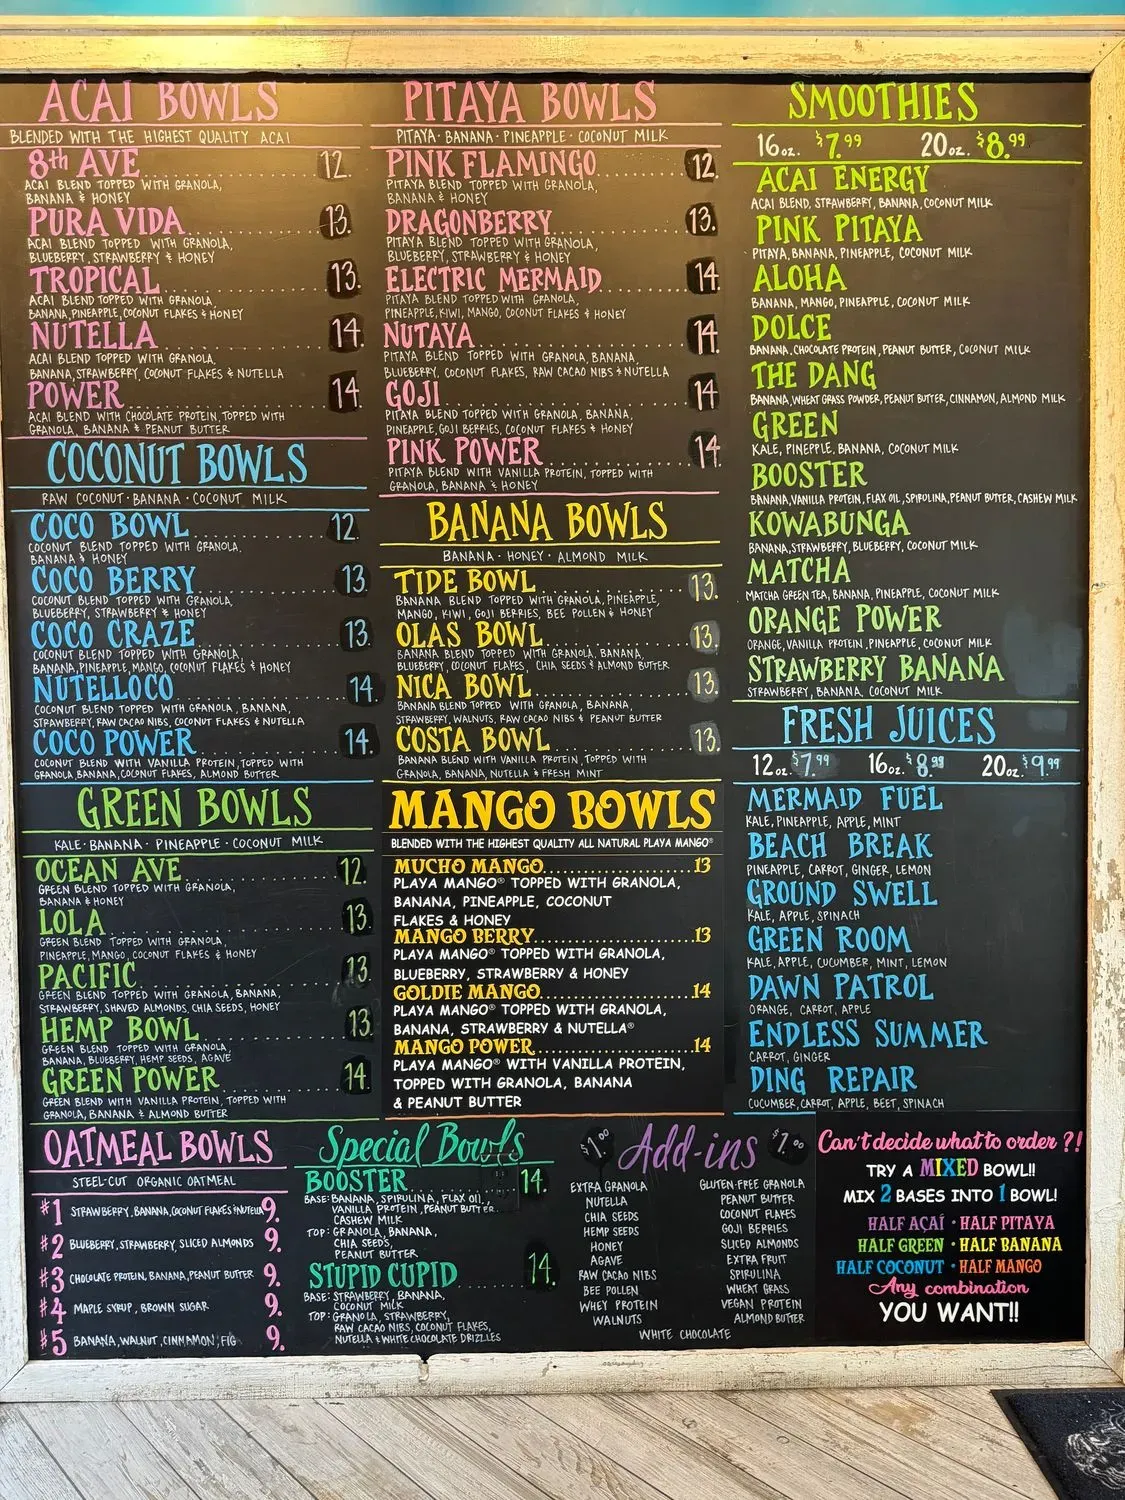 ACAI BOWLS
BLENDED WITH THE HIGHEST QUALITY ACAI
8th AVE 12.
ACAI BLEND TOPPED WITH GRANOLA,
BANANA & HONEY
PURA VIDA 13.
ACAI BLEND TOPPED WITH GRANOLA,
BLUEBERRY, STRAWBERRY & HONEY
TROPICAL 13.
ACAI BLEND TOPPED WITH GRANOLA,
BANANA, PINEAPPLE, COCONUT FLAKES & HONEY
NUTELLA 14.
ACAI BLEND TOPPED WITH GRANOLA,
BANANA, STRAWBERRY, COCONUT FLAKES & NUTELLA
POWER 14.
ACAI BLEND WITH CHOCOLATE PROTEIN, TOPPED WITH
GRANOLA, BANANA & PEANUT BUTTER
COCONUT BOWLS
RAW COCONUT · BANANA · COCONUT MILK
COCO BOWL 12.
COCONUT BLEND TOPPED WITH GRANOLA,
BANANA & HONEY
COCO BERRY 13
COCONUT BLEND TOPPED WITH GRANOLA,
BLUEBERRY, STRAWBERRY & HONEY
COCO CRAZE 13.
COCONUT BLEND TOPPED WITH GRANOLA,
BANANA, PINEAPPLE, MANGO, COCONUT FLAKES & HONEY
NUTELLOCO 14.
COCONUT BLEND TOPPED WITH GRANOLA, BANANA,
STRAWBERRY, RAW CACAO NIBS, COCONUT FLAKES & NUTELLA
COCO POWER 14.
COCONUT BLEND WITH VANILLA PROTEIN, TOPPED WITH
GRANOLA, BANANA, COCONUT FLAKES, ALMOND BUTTER
GREEN BOWLS
KALE · BANANA · PINEAPPLE · COCONUT MILK
OCEAN AVE 12.
GREEN BLEND TOPPED WITH GRANOLA,
BANANA & HONEY
LOLA 13.
GREEN BLEND TOPPED WITH GRANOLA,
PINEAPPLE, MANGO, COCONUT FLAKES & HONEY
PACIFIC 13
GREEN BLEND TOPPED WITH GRANOLA, BANANA,
STRAWBERRY, SHAVED ALMONDS, CHIA SEEDS, HONEY
HEMP BOWL 13
GREEN BLEND TOPPED WITH GRANOLA,
BANANA, BLUEBERRY, HEMP SEEDS, AGAVE
GREEN POWER 14.
GREEN BLEND WITH VANILLA PROTEIN, TOPPED WITH
GRANOLA, BANANA & ALMOND BUTTER
OATMEAL BOWLS
STEEL-CUT ORGANIC OATMEAL
#1 STRAWBERRY, BANANA, COCONUT FLAKES & NUTELLA 9.
#2 BLUEBERRY, STRAWBERRY, SLICED ALMONDS 9.
#3 CHOCOLATE PROTEIN, BANANA, PEANUT BUTTER 9.
#4 MAPLE SYRUP, BROWN SUGAR 9.
#5 BANANA, WALNUT, CINNAMON, FIG 9.
PITAYA BOWLS
PITAYA · BANANA · PINEAPPLE · COCONUT MILK
PINK FLAMINGO 12.
PITAYA BLEND TOPPED WITH GRANOLA,
BANANA & HONEY
DRAGONBERRY 13.
PITAYA BLEND TOPPED WITH GRANOLA,
BLUEBERRY, STRAWBERRY & HONEY
ELECTRIC MERMAID 14
PITAYA BLEND TOPPED WITH GRANOLA,
PINEAPPLE, KIWI, MANGO, COCONUT FLAKES & HONEY
NUTAYA 14.
PITAYA BLEND TOPPED WITH GRANOLA, BANANA,
BLUEBERRY, COCONUT FLAKES, RAW CACAO NIBS & NUTELLA
GOJI 14
PITAYA BLEND TOPPED WITH GRANOLA, BANANA,
PINEAPPLE, GOJI BERRIES, COCONUT FLAKES & HONEY
PINK POWER 14.
PITAYA BLEND WITH VANILLA PROTEIN, TOPPED WITH
GRANOLA, BANANA & HONEY
BANANA BOWLS
BANANA · HONEY · ALMOND MILK
TIDE BOWL 13.
BANANA BLEND TOPPED WITH GRANOLA, PINEAPPLE,
MANGO, KIWI, GOJI BERRIES, BEE POLLEN & HONEY
OLAS BOWL 13.
BANANA BLEND TOPPED WITH GRANOLA, BANANA,
BLUEBERRY, COCONUT FLAKES, CHIA SEEDS & ALMOND BUTTER
NICA BOWL 13.
BANANA BLEND TOPPED WITH GRANOLA, BANANA,
STRAWBERRY, WALNUTS, RAW CACAO NIBS & PEANUT BUTTER
COSTA BOWL 13.
BANANA BLEND WITH VANILLA PROTEIN, TOPPED WITH
GRANOLA, BANANA, NUTELLA & FRESH MINT
MANGO BOWLS
BLENDED WITH THE HIGHEST QUALITY ALL NATURAL PLAYA MANGO®
MUCHO MANGO 13
PLAYA MANGO® TOPPED WITH GRANOLA,
BANANA, PINEAPPLE, COCONUT
FLAKES & HONEY
MANGO BERRY 13
PLAYA MANGO® TOPPED WITH GRANOLA,
BLUEBERRY, STRAWBERRY & HONEY
GOLDIE MANGO 14
PLAYA MANGO® TOPPED WITH GRANOLA,
BANANA, STRAWBERRY & NUTELLA®
MANGO POWER 14
PLAYA MANGO® WITH VANILLA PROTEIN,
TOPPED WITH GRANOLA, BANANA
& PEANUT BUTTER
Special Bowls
BOOSTER 14.
BASE: BANANA, SPIRULINA, FLAX OIL,
VANILLA PROTEIN, PEANUT BUTTER
CASHEW MILK
TOP: GRANOLA, BANANA,
CHIA SEEDS,
PEANUT BUTTER
STUPID CUPID 14.
BASE: STRAWBERRY, BANANA,
COCONUT MILK
TOP: GRANOLA, STRAWBERRY,
RAW CACAO NIBS, COCONUT FLAKES,
NUTELLA & WHITE CHOCOLATE DRIZZLES
SMOOTHIES
16oz. $7.99 20oz. $8.99
ACAI ENERGY
ACAI BLEND, STRAWBERRY, BANANA, COCONUT MILK
PINK PITAYA
PITAYA, BANANA, PINEAPPLE, COCONUT MILK
ALOHA
BANANA, MANGO, PINEAPPLE, COCONUT MILK
DOLCE
BANANA, CHOCOLATE PROTEIN, PEANUT BUTTER, COCONUT MILK
THE DANG
BANANA, WHEAT GRASS POWDER, PEANUT BUTTER, CINNAMON, ALMOND MILK
GREEN
KALE, PINEPPLE, BANANA, COCONUT MILK
BOOSTER
BANANA, VANILLA PROTEIN, FLAX OIL, SPIRULINA, PEANUT BUTTER, CASHEW MILK
KOWABUNGA
BANANA, STRAWBERRY, BLUEBERRY, COCONUT MILK
MATCHA
MATCHA GREEN TEA, BANANA, PINEAPPLE, COCONUT MILK
ORANGE POWER
ORANGE, VANILLA PROTEIN, PINEAPPLE, COCONUT MILK
STRAWBERRY BANANA
STRAWBERRY, BANANA, COCONUT MILK
FRESH JUICES
12oz. $7.99 16oz. $8.99 20oz. $9.99
MERMAID FUEL
KALE, PINEAPPLE, APPLE, MINT
BEACH BREAK
PINEAPPLE, CARROT, GINGER, LEMON
GROUND SWELL
KALE, APPLE, SPINACH
GREEN ROOM
KALE, APPLE, CUCUMBER, MINT, LEMON
DAWN PATROL
ORANGE, CARROT, APPLE
ENDLESS SUMMER
CARROT, GINGER
DING REPAIR
CUCUMBER, CARROT, APPLE, BEET, SPINACH
$1.00 Add-ins $2.00
EXTRA GRANOLA
NUTELLA
CHIA SEEDS
HEMP SEEDS
HONEY
AGAVE
RAW CACAO NIBS
BEE POLLEN
WHEY PROTEIN
WALNUTS
GLUTEN-FREE GRANOLA
PEANUT BUTTER
COCONUT FLAKES
GOJI BERRIES
SLICED ALMONDS
EXTRA FRUIT
SPIRULINA
WHEAT GRASS
VEGAN PROTEIN
ALMOND BUTTER
WHITE CHOCOLATE
Can't decide what to order ?!
TRY A MIXED BOWL!!
MIX 2 BASES INTO 1 BOWL!
HALF ACAÍ · HALF PITAYA
HALF GREEN · HALF BANANA
HALF COCONUT · HALF MANGO
Any combination
YOU WANT!!